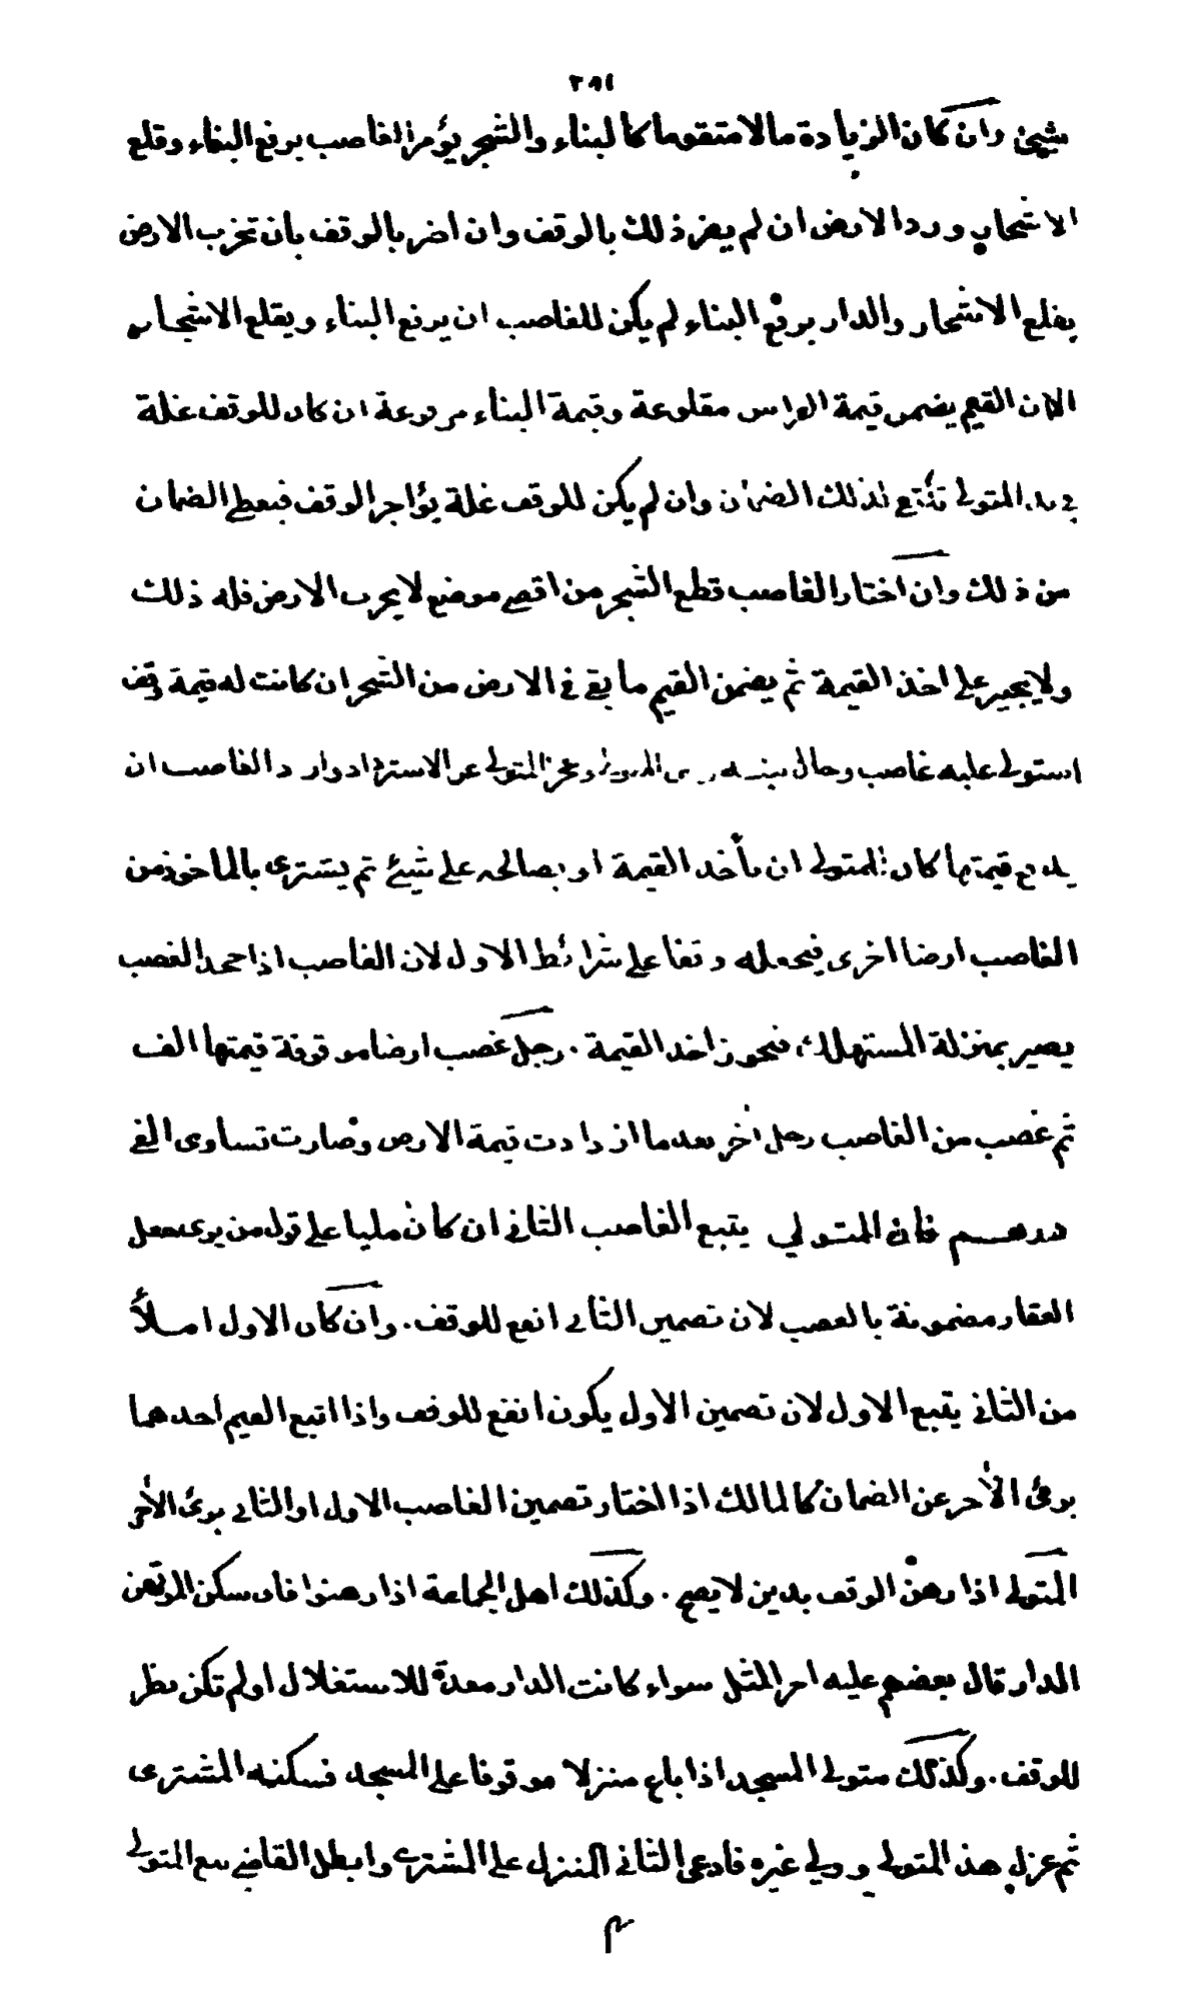 ٢٩١
شيئ وان كان الزيادة مالا متقوما كالبناء والشجر يؤمر الغاصب برفع البناء وقلع
الاشجار ورد الارض ان لم يضر ذلك بالوقف وان اضر بالوقف بان تخرب الارض
بقلع الاشجار والدار برفع البناء لم يكن للغاصب ان يرفع البناء ويقلع الاشجار
الا ان القيم يضمن قيمة الغراس مقلوعة وقيمة البناء مرفوعة ان كان للوقف غلة
في يد المتولى لذلك الضمان وان لم يكن للوقف غلة يؤاجر الوقف فيعطى الضمان
من ذلك وان اختار الغاصب قطع الشجر من اقصى موضع لا يخرب الارض فله ذلك
ولا يجبر على اخذ القيمة ثم يضمن القيم ما بقى فى الارض من الشجر ان كانت له قيمة وقف
استولى عليه غاصب وحال بينه وبين المتولى وعجز المتولى عن الاسترداد واراد الغاصب ان
يدفع قيمتها كان للمتولى ان يأخذ القيمة او يصالحه على شيئ ثم يشترى بالماخوذ من
الغاصب ارضا اخرى فيجعله وقفا على شرائط الاول لان الغاصب اذا جحد الغصب
يصير بمنزلة المستهلك فيجوز اخذ القيمة . رجل غصب ارضا موقوفة قيمتها الف
ثم غصب من الغاصب رجل اخر بعد ما ازدادت قيمة الارض وصارت تساوى الفى
درهم فان المتولي يتبع الغاصب الثانى ان كان مليا على قول من يرى جعل
العقار مضمونة بالغصب لان تضمين الثانى انفع للوقف . وان كان الاول املأ
من الثانى يتبع الاول لان تضمين الاول يكون انفع للوقف واذا اتبع القيم احدهما
برئ الأخر عن الضمان كالمالك اذا اختار تضمين الغاصب الاول او الثانى برئ الأخر
المتولى اذا رهن الوقف بدين لا يصح . وكذلك اهل الجماعة اذا رهنوا فان سكن المرتهن
الدار قال بعضهم عليه اجر المثل سواء كانت الدار معدة للاستغلال اولم تكن نظر
للوقف . وكذلك متولى المسجد اذا باع منزلا موقوفا على المسجد فسكنه المشترى
ثم عزل هذا المتولى وولي غيره فادعى الثانى المنزل على المشترى وابطل القاضى بيع المتولى